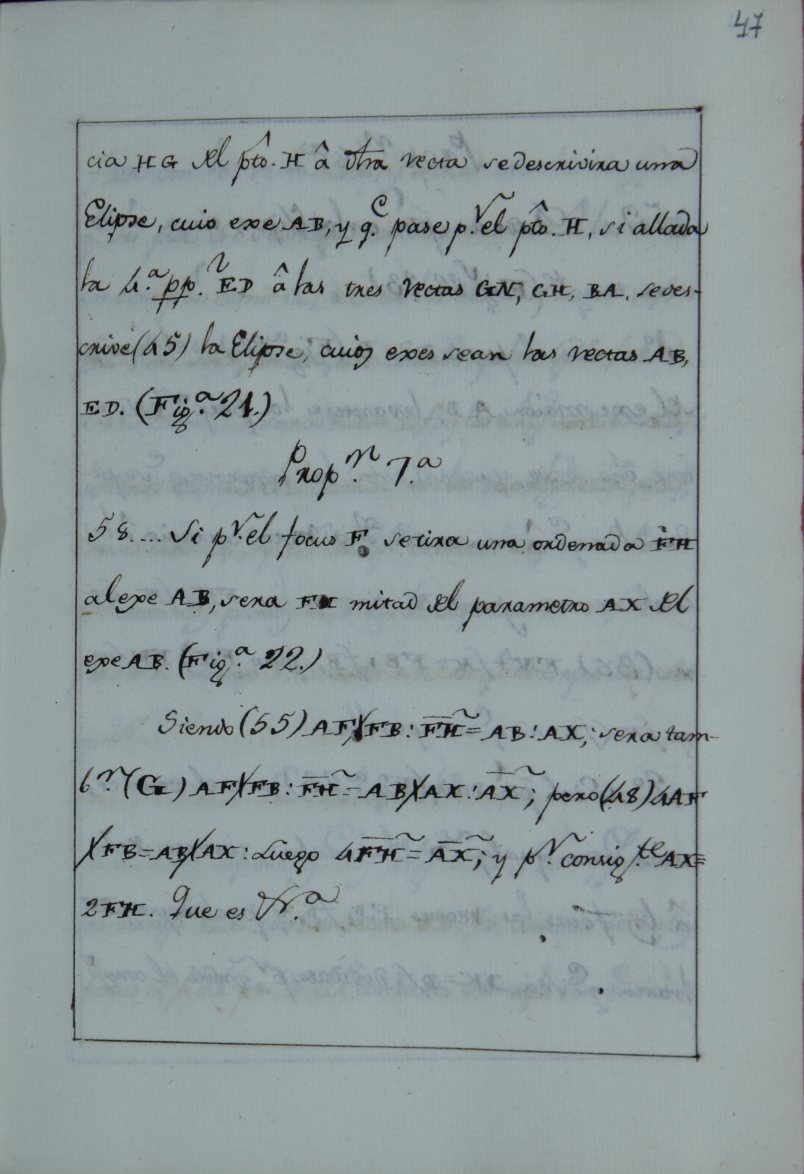 47
cia HG del pto. H â dtra recta se descrivira una
Elipse, cuio exe AB, y q.e pase p.r el pto. H, si allada
la 4.a pp.l ED â las tres rectas GN, GH, BA. se des-
crive (45) la Elipse, cuios exes sean las rectas AB,
ED. (Fig.a 21.)
Prop.n 7.a
58.... Si p.r el focus F se tira una ordenada FH
al exe AB, sera FH mitad del parametro AX del
exe AB. (Fig.a 22.)
Siendo (55) AF╳FB : FH² = AB : AX; sera tam-
b.n (G) AF╳FB : FH² = AB╳AX : AX²; pero (48) 4AF
╳FB = AB╳AX : Luego 4FH² = AX²; y p.r consig.te AX =
2FH. Que es